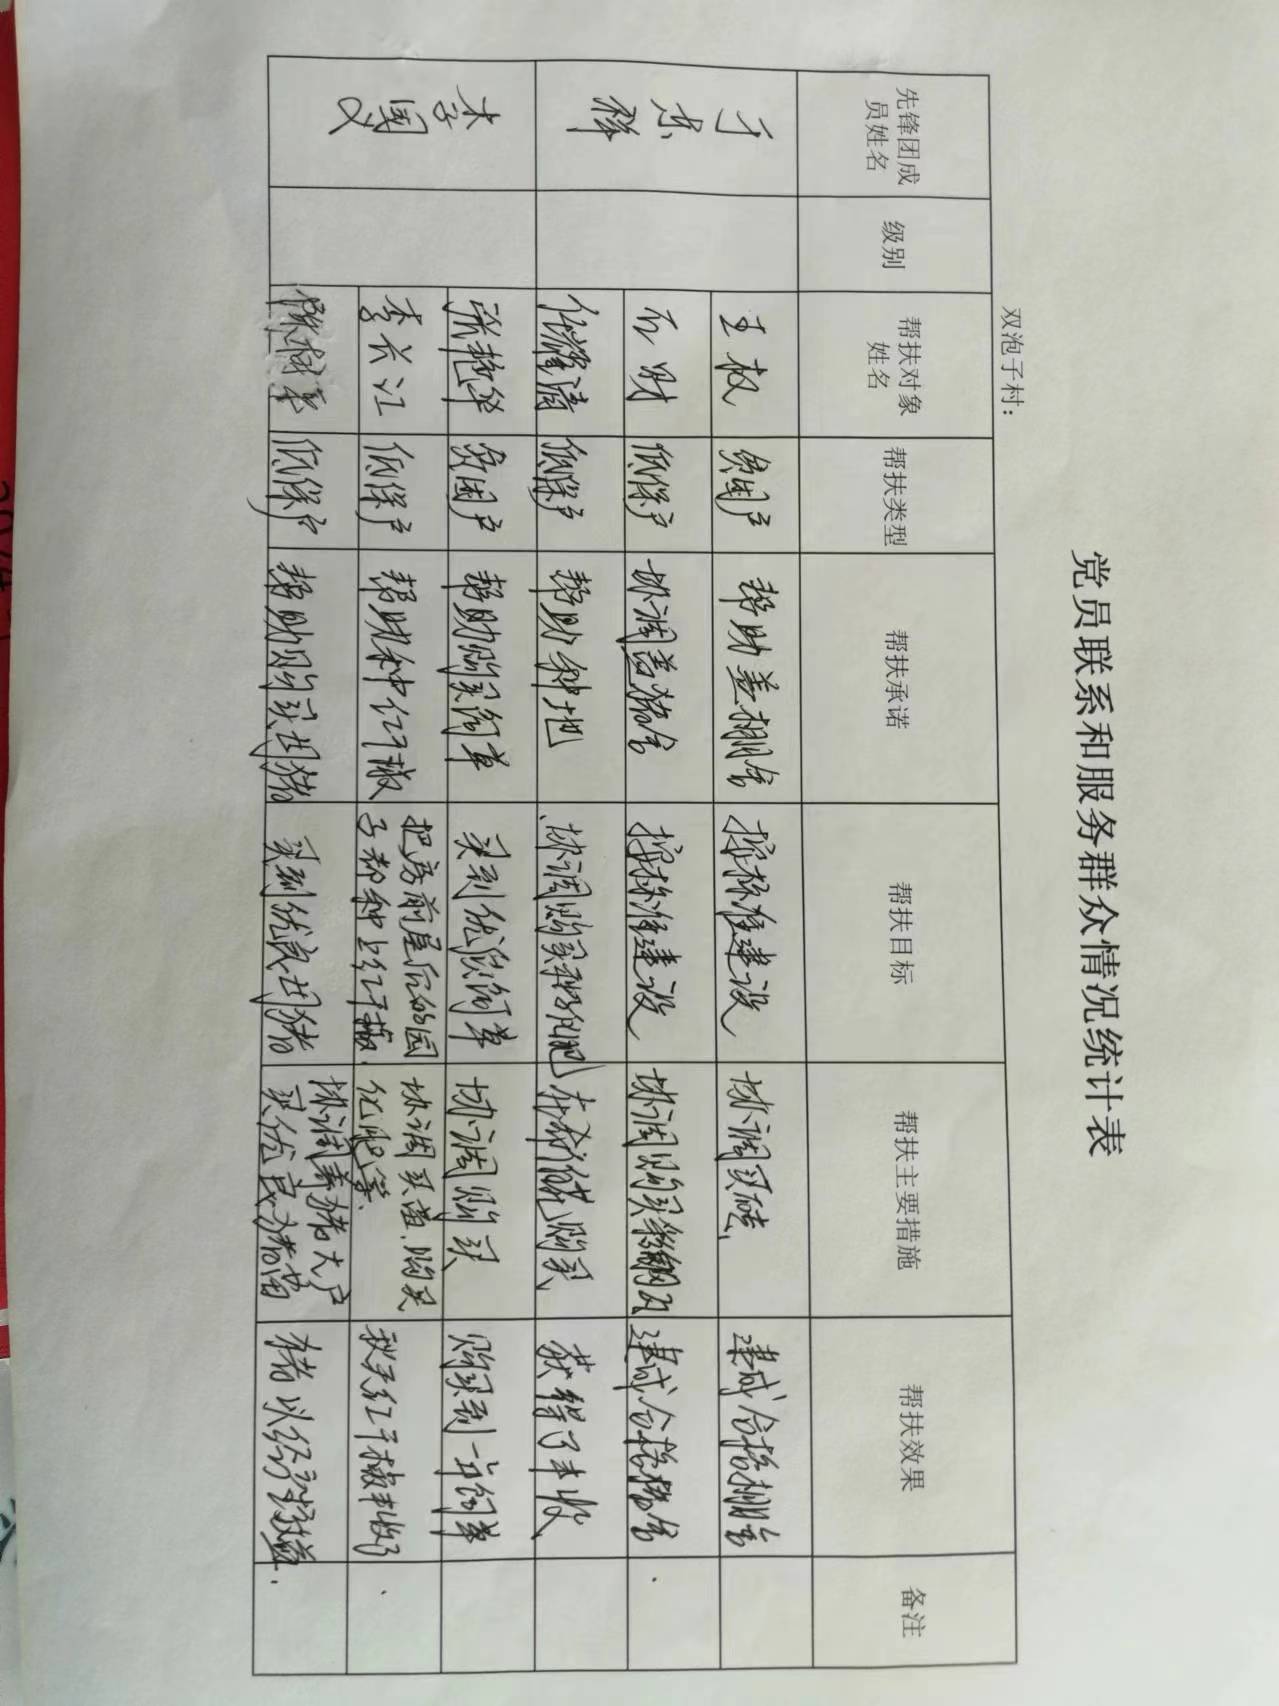 党员联系和服务群众情况统计表
双泡子村：
先锋团成员姓名 级别 帮扶对象姓名 帮扶类型 帮扶承诺 帮扶目标 帮扶主要措施 帮扶效果 备注
于东祥 王权 贫困户 帮助盖棚舍 按标准建设 协调买砖, 建成合格棚舍
石财 低保户 协调盖猪舍 按标准建设 协调购买彩钢瓦 建成合格猪舍.
任耀清 低保户 帮助种地 协调购买种子化肥 购买 获得了丰收
李国义 张艳华 贫困户 帮助购买饲草 买到优质饲草 协调购买 购买到一年饲草
李长江 低保户 帮助种红干椒 把房前屋后的园子都种上红干椒. 协调买苗.购买化肥等. 秋天红干椒丰收了.
陈树军 低保户 帮助购买母猪 买到优良母猪 协调养猪大户买优良猪苗 猪以经产生效益.